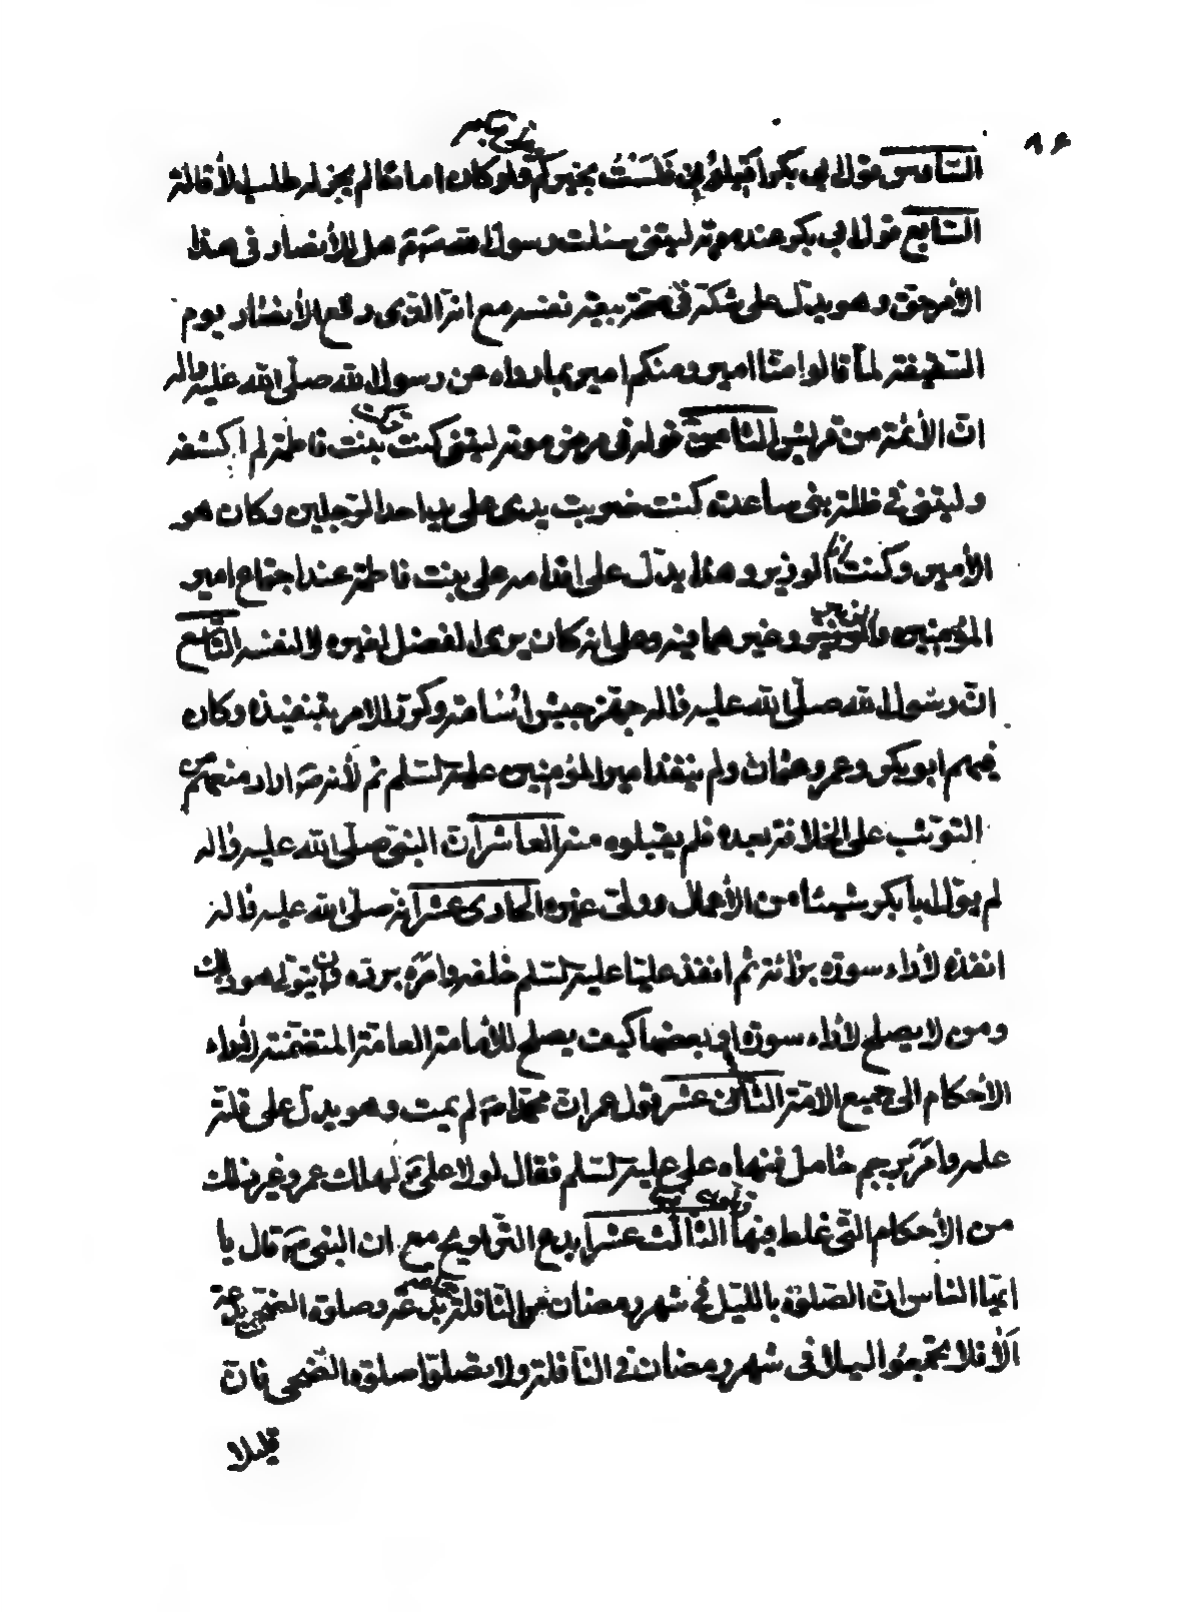 ٨٤
السّادس قول ابى بكر اقيلونى فلست بخيركم ولو كان اماما لم يجز له طلب الأقالة
السّابع قول ابى بكر عند موته ليتنى سئلت رسول الله صلعم هل للأنصار فى هذا
الأمر حق وهو يدلّ على شكّه فى صحّة بيعة نفسه مع انّه الذى دفع الأنصار يوم
السّقيفة لمّا قالوا منّا امير ومنكم امير بما رواه عن رسول الله صلّى الله عليه واله
انّ الأئمّة من قريش الثّامن قوله فى مرض موته ليتنى كنت تركت بيت فاطمة لم اكشفه
وليتنى فى ظلة بنى ساعدة كنت ضربت يدى على يد احد الرّجلين وكان هو
الأمير وكنت الوزير وهذا يدلّ على اقدامه على بيت فاطمة عند اجتماع امير
المؤمنين والزّبير وغيرهما فيه وعلى انه كان يرى الفضل لغيره لا لنفسه التّاسع
انّ رسول الله صلّى الله عليه واله جهّز جيش اُسامة وكرّر الامر بتنفيذه وكان
فيهم ابو بكر وعمر وعثمان ولم ينفذ امير المؤمنين عليه السّلم ثم لأنه ص اراد منعهم من
التوثّب على الخلافة بعده فلم يقبلوه منه العاشر انّ النبى صلّى الله عليه واله
لم يولّ ابا بكر شيئا من الأعمال وولّى غيره الحادى عشر انه صلّى الله عليه واله
انفذه لأداء سورة برائة ثم انفذ عليّا عليه السّلم خلفه وامره بردّه وان يتولى هو ذلك
ومن لا يصلح لأداء سورة او بعضها كيف يصلح للأمامة العامّة المتضمّنة لأداء
الأحكام الى جميع الامّة الثّانى عشر قول عمر انّ محمّدا ص لم يمت وهو يدلّ على قلّة
علمه وامر برجم حامل فنهاه على عليه السّلم فقال لولا على ع لهلك عمر وغير ذلك
من الأحكام التّى غلط فيها الثّالث عشر ابدع التّراويح مع ان النبى ص قال يا
ايّها النّاس انّ الصّلوة بالليّل فى شهر رمضان من النّافلة بدعة وصلوة الضّحى بدعة
اَلا فلا تجتمعُوا ليلا فى شهر رمضان فى النّافلة ولا تصلّوا صلوة الضّحى فانّ
قليلا